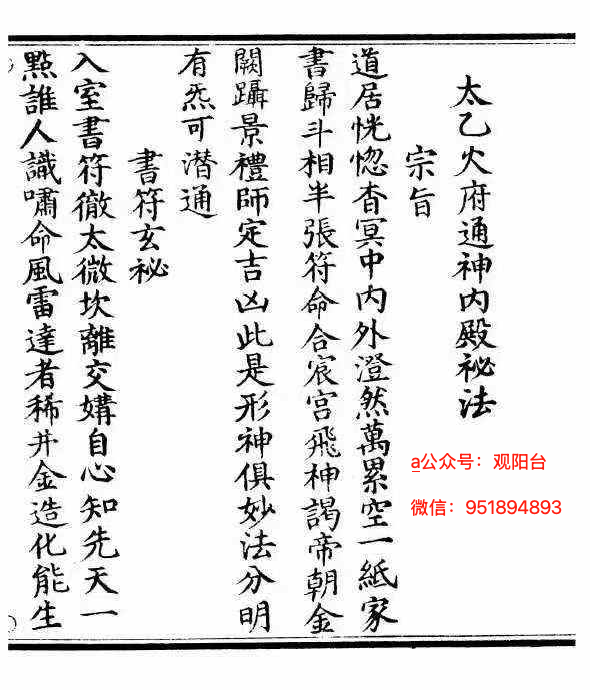 太乙火府通神内殿祕法
宗旨
道居恍惚杳冥中内外澄然萬累空一紙家
書歸斗相半張符命合宸宮飛神謁帝朝金
闕躡景禮師定吉凶此是形神俱妙法分明
有炁可潛通
書符玄祕
入室書符徹太微坎離交媾自心知先天一
點誰人識嘯命風雷達者稀井金造化能生
a公众号：观阳台
微信：951894893